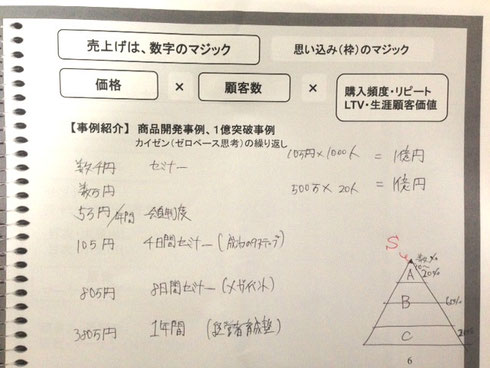 売上げは、数字のマジック 思い込み(枠)のマジック
価格 × 顧客数 × 購入頻度・リピート
LTV・生涯顧客価値
【事例紹介】 商品開発事例、1億突破事例
カイゼン(ゼロベース思考)の繰り返し
数千円 セミナー 10万円×1000人 = 1億円
数万円 500万×20人 = 1億円
5万円/年間 会員制度
10万円 4日間セミナー(成功の9ステップ)
80万円 8日間セミナー(メガポイント)
380万円 1年間 (経営者育成塾)
S
数%
A 10~20%
B
C 20%
6